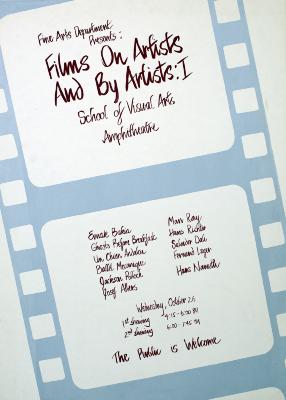 Fine Arts Department
Presents:
Films On Artists
And By Artists: I
School of Visual Arts
Amphitheatre
Emak Bakia
Man Ray
Ghosts Before Breakfast
Hans Richter
Un Chien Andalou
Salvador Dali
Ballet Mecanique
Fernand Leger
Jackson Pollock
Hans Namuth
Josef Albers
Wednesday, October 26
1st showing 4:15 - 6:00 PM
2nd showing 6:00 - 7:45 PM
The Public is Welcome